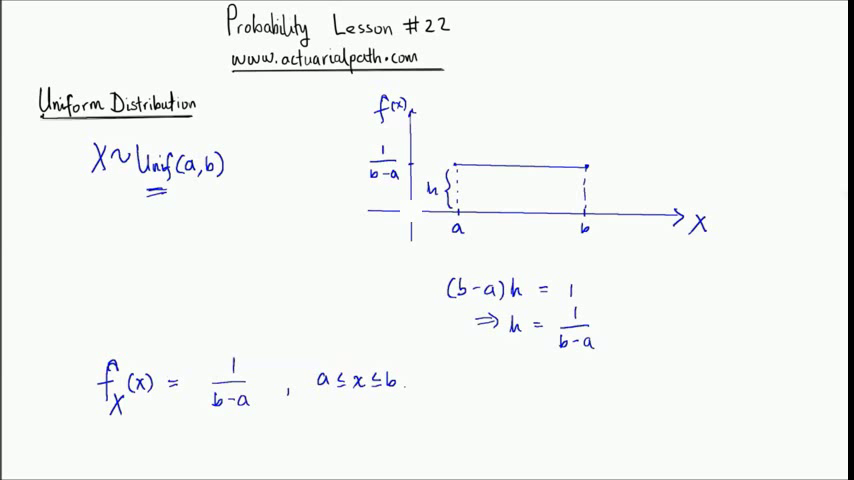 Probability Lesson #22
www.actuarialpath.com
Uniform Distribution
X ~ Unif(a,b)
f(x)
1/(b-a)
h
a
b
X
(b-a)h = 1
⇒ h = 1/(b-a)
f_X(x) = 1/(b-a) , a ≤ x ≤ b.